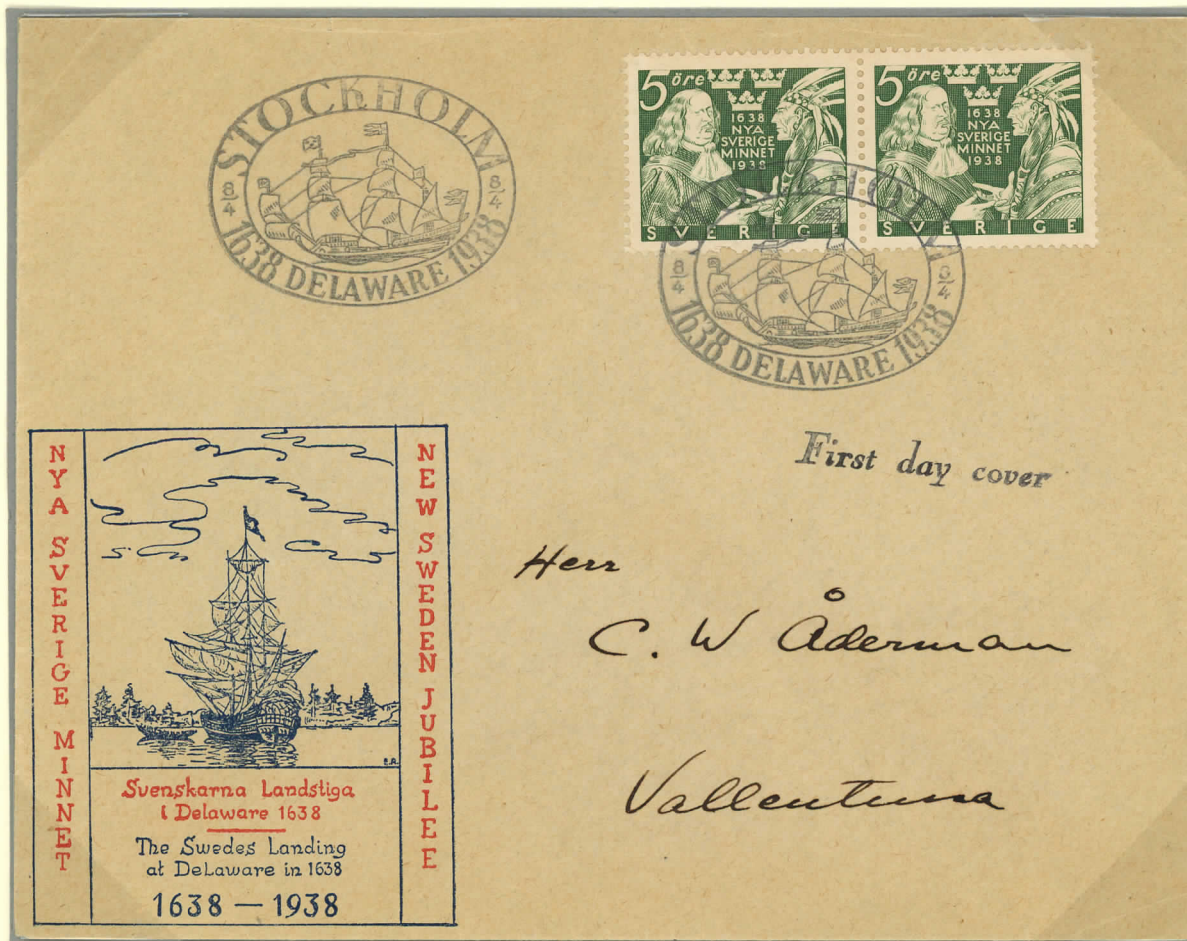 STOCKHOLM
8/4 8/4
1638 DELAWARE 1938
5 öre
1638
NYA
SVERIGE
MINNET
1938
SVERIGE
5 öre
1638
NYA
SVERIGE
MINNET
1938
SVERIGE
STOCKHOLM
8/4 8/4
1638 DELAWARE 1938
First day cover
Herr
C. W Åderman
Vallentuna
NYA SVERIGE MINNET
NEW SWEDEN JUBILEE
E.A.
Svenskarna Landstiga
i Delaware 1638
The Swedes Landing
at DeLaware in 1638
1638 — 1938